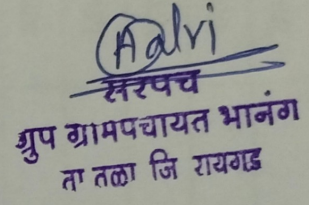 सरपंच
ग्रुप ग्रामपंचायत भानंग
ता तळा जि रायगड